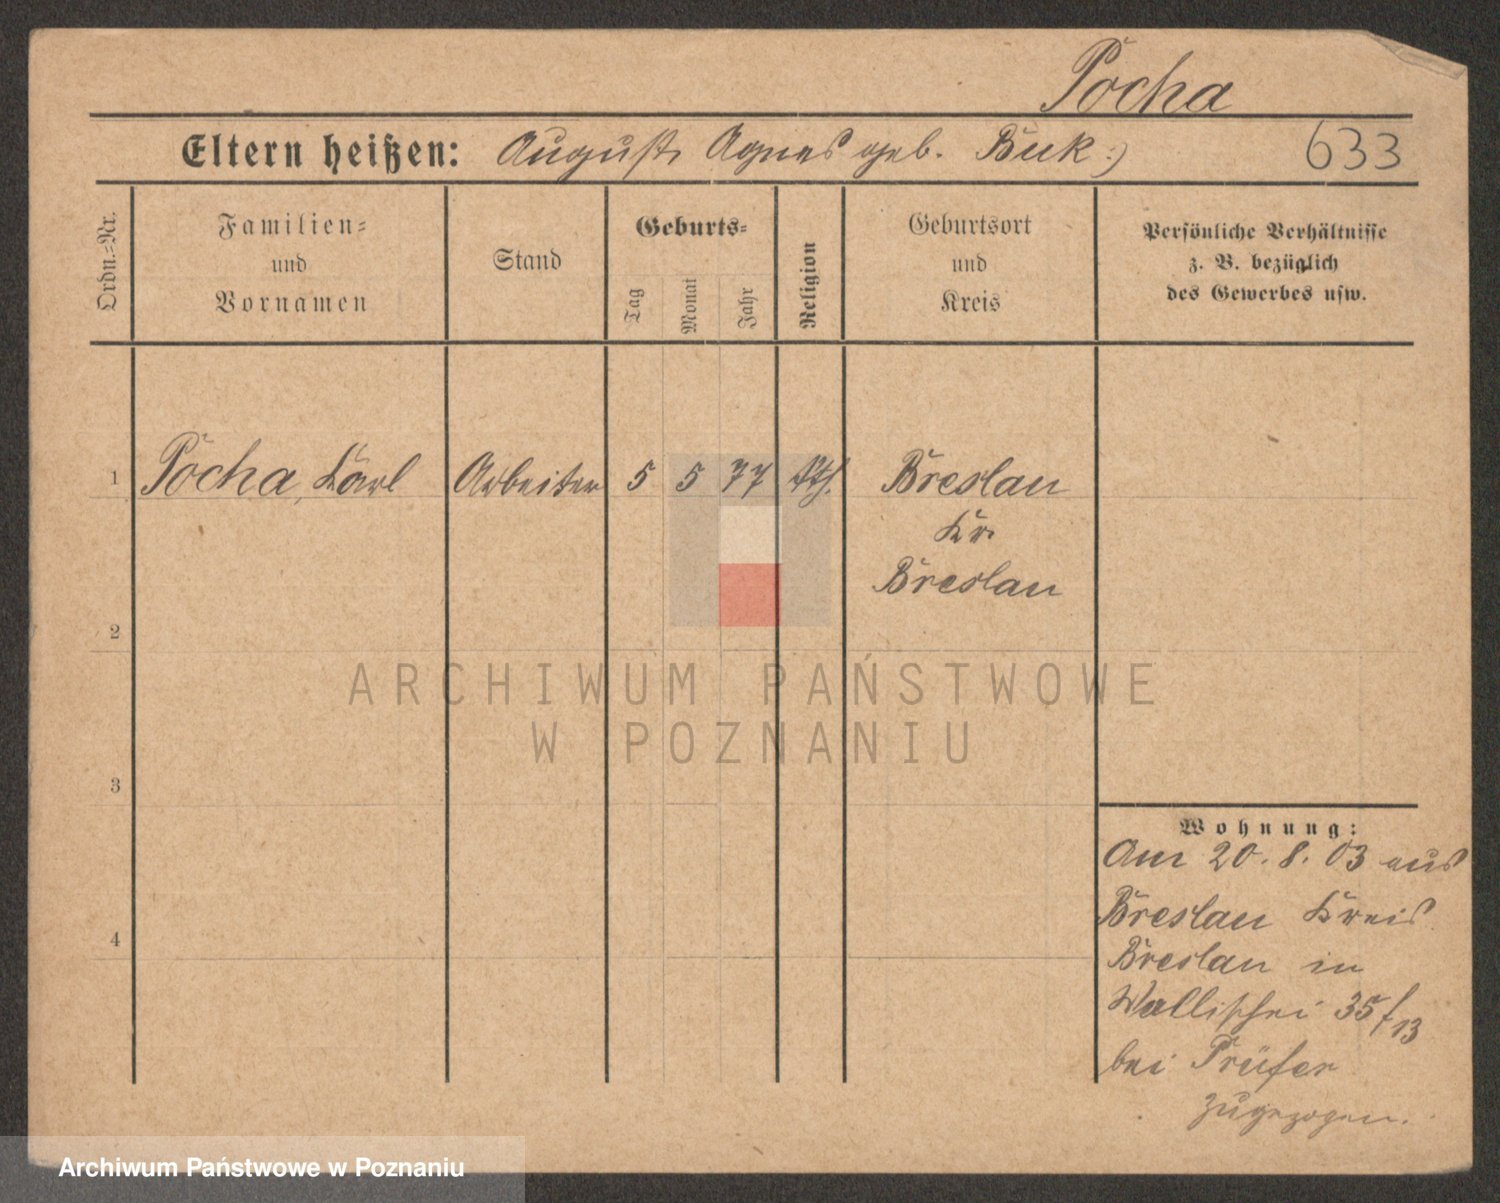 Pocha
Eltern heißen: August, Agnes geb. Buk :)
633
Ordn.=Nr.
Familien=
und
Vornamen
Stand
Geburts=
Tag
Monat
Jahr
Religion
Geburtsort
und
Kreis
Persönliche Verhältnisse
z. B. bezüglich
des Gewerbes usw.
1 Pocha, Karl Arbeiter 5 5 77 kth. Breslau
Kr.
Breslau
2
3
4
Wohnung:
Am 20. 8. 03 aus
Breslau Kreis
Breslau in
Wallischei 35/13
bei Prüfer
zugezogen.
ARCHIWUM PAŃSTWOWE
W POZNANIU
Archiwum Państwowe w Poznaniu